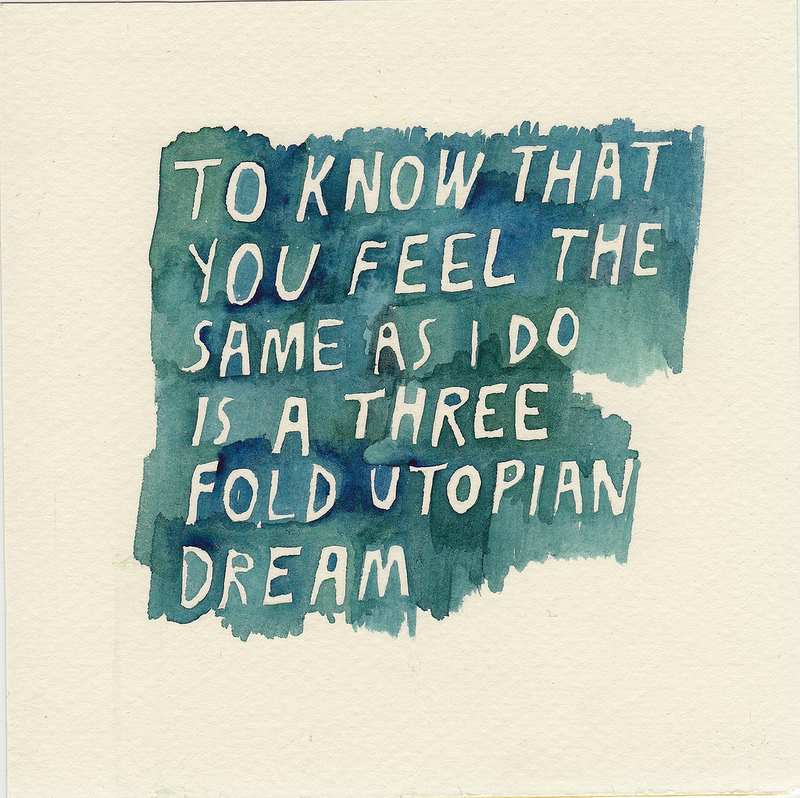 TO KNOW THAT
YOU FEEL THE
SAME AS I DO
IS A THREE
FOLD UTOPIAN
DREAM